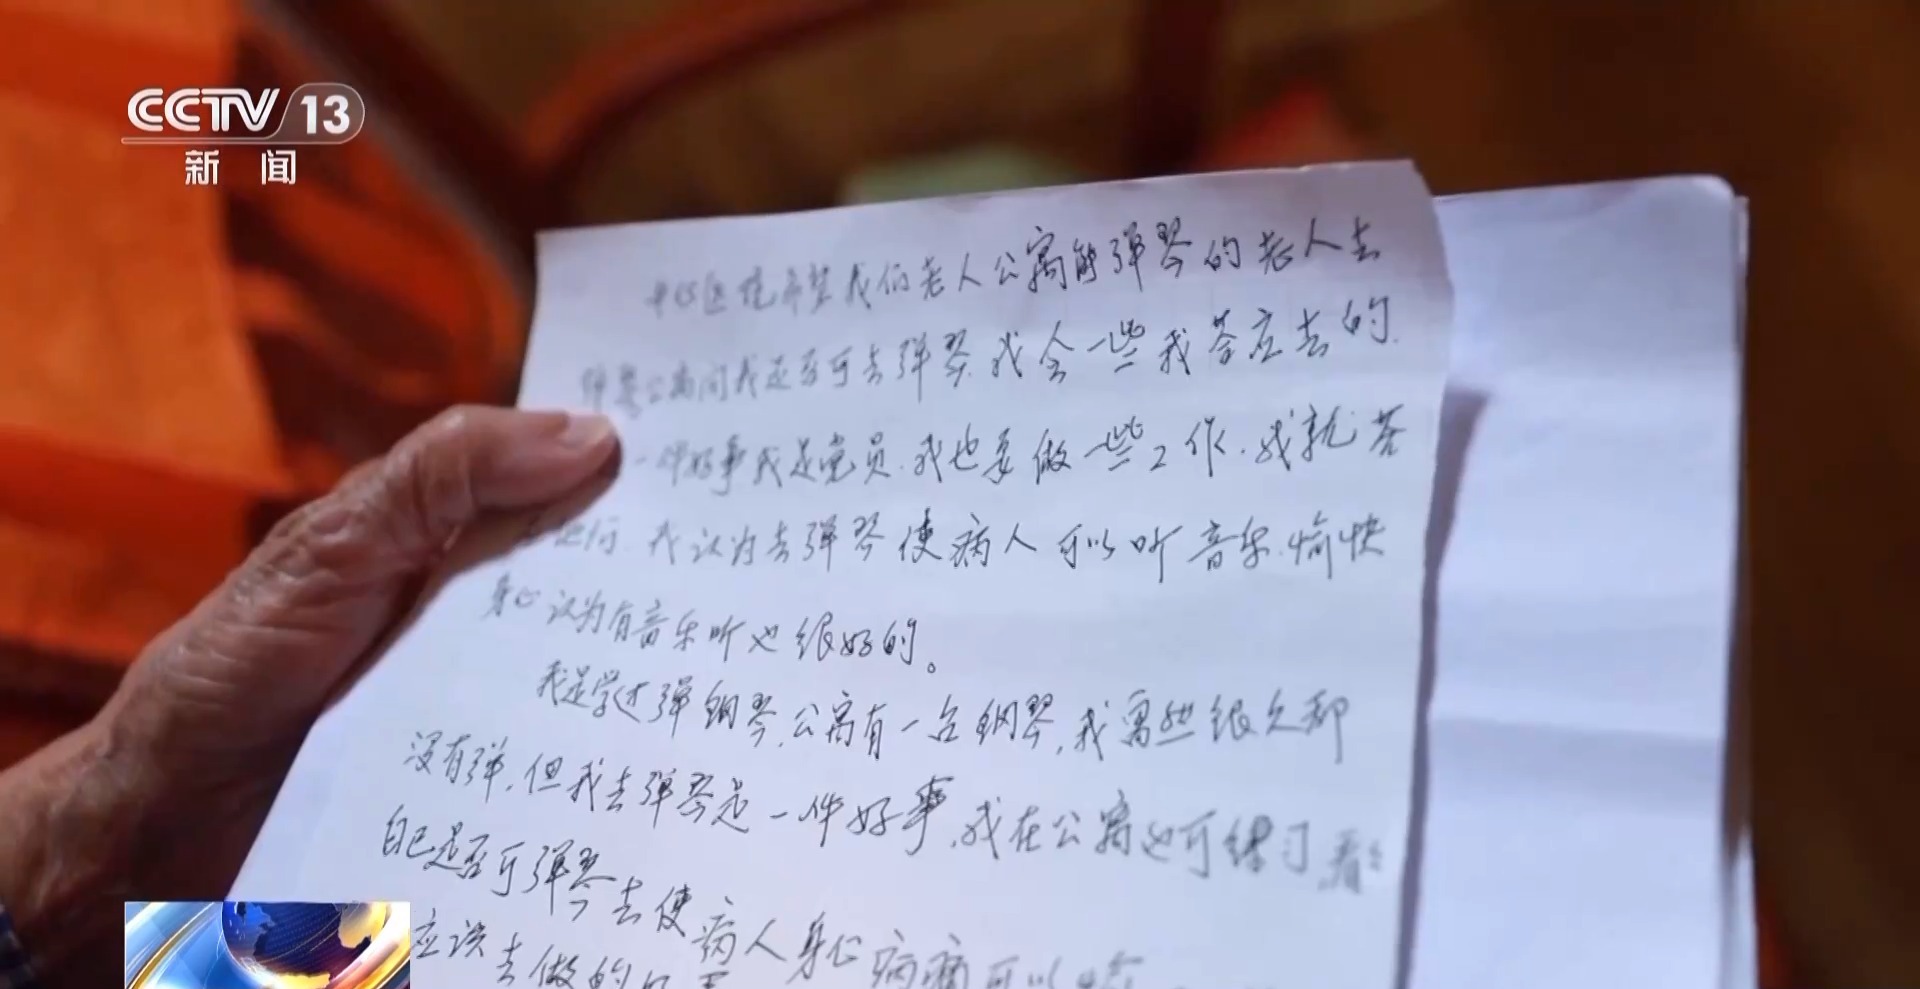 CCTV 13
新闻
中心医院希望我们老人公寓能弹琴的老人去
弹琴公寓问我是否可去弹琴.我会一些我答应去的.
一件好事我是党员.我也要做一些工作.我就答
我认为去弹琴使病人可以听音乐.愉快
身心认为有音乐听也很好的。
我是学过弹钢琴.公寓有一台钢琴,我虽然很久都
没有弹.但我去弹琴是一件好事.我在公寓也可练习,看
自己是否可弹琴去使病人身心病痛可以
应该去做的